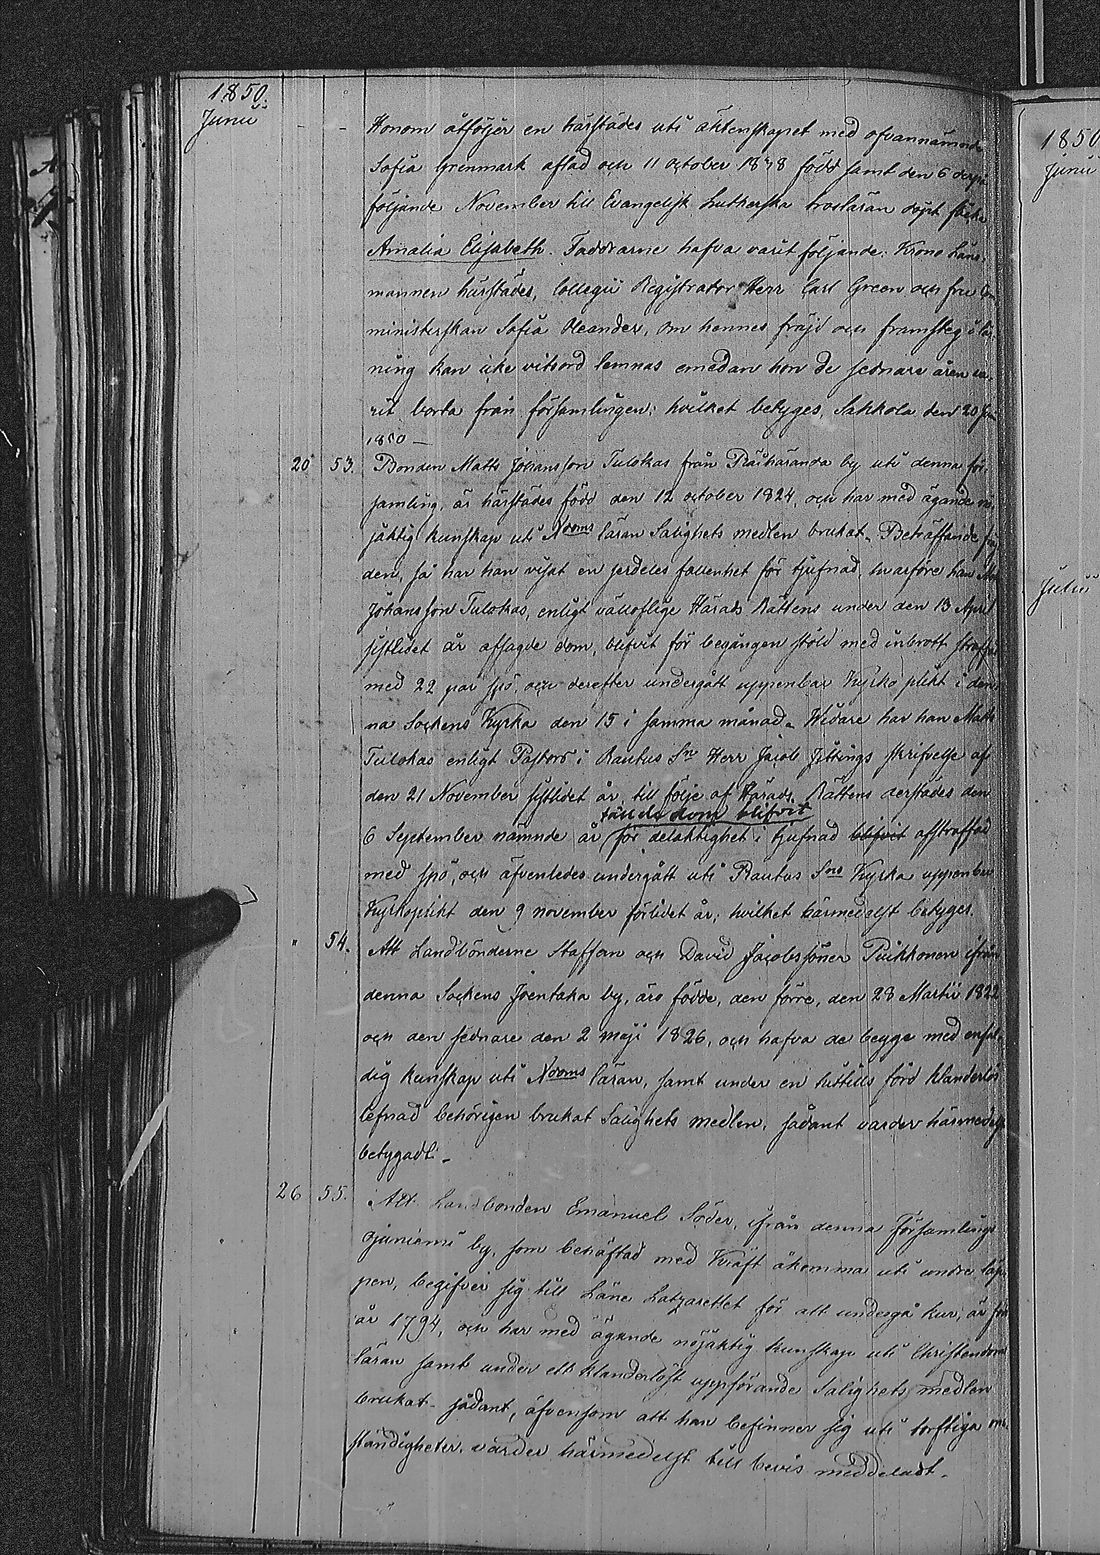 1850.
Junii
Honom åtföljer en härstädes uti äktenskapet med ofvannämnde
Sofia Grenmark aflad och 11 october 1848 född samt den 6 derpå
följande November till Evangelisk Lutherska trosläran döpt
Amalia Elisabeth. Faddrarne hafva varit följande: Krono Läns-
mannen härstädes, Collegii Registrator Herr Carl Green och fru
ministerskan Sofia Oleander, om hennes fräjd och framsteg i
ning kan icke vitsord lemnas emedan hon de sednare åren va-
rit borta från församlingen; hvilket betyges, Sakkola den 20
1850 —
20 53. Bonden Matts Johansson Tulokas från Räihäranda by uti denna för-
samling, är härstädes född den 12 october 1824, och har med ägande
jäktig kunskap uti Xdoms läran Salighets medlen brukat. Beträffande
den, så har han visat en serdeles fallenhet för tjufnad, hvarföre han
Johansson Tulokas, enligt vällofliga Härads Rättens under den 13 April
sistlidet år afsagde dom, blifvit för begången stöld med inbrott
med 22 par spö, och derefter undergått uppenbar Kyrko plikt i den-
na Sockens Kyrka den 15 i samma månad. Widare har han Matts
Tulokas enligt Pastors i Rautus Sn Herr Jacob skrifvelse af
den 21 November sistlidet år till följe af Härads Rättens derstädes den
fällde dom blifvit
6 September nämnde år för delaktighet i tjufnad blifvit afstraffad
med spö, och äfvenledes undergått uti Rautus Sns Kyrka uppenbar
Kyrkoplikt den 9 november förlidet år; hvilket härmedelst betyges.
" 54. Att Landbönderne Staffan och David Jacobssöner Pukkonen ifrån
denna Sockens Joentaka by, äro födde, den förre, den 28 Martii 1822
och den sednare den 2 Maji 1826, och hafva de begge med enfal-
dig kunskap uti Xdoms läran, samt under en hittills förd klanderlös
lefnad behörigen brukat Salighets medlen, sådant varder härmedelst
betygadt.
26 55. Att Landbonden Emanuel Söder, ifrån denna Församlings
Ojaniemi by, som behäftad med Kräft åkomma uti undre läp-
pen, begifver sig till Läne Lazarettet för att undergå kur, är född
år 1794, och har med ägande nöjaktig kunskap uti Christendoms
läran samt under ett klanderlöst uppförande Salighets medlen
brukat. sådant, äfvensom att han befinner sig uti torftiga om-
ständigheter, varder härmedelst till bevis meddeladt.
1850
Junii
Julii